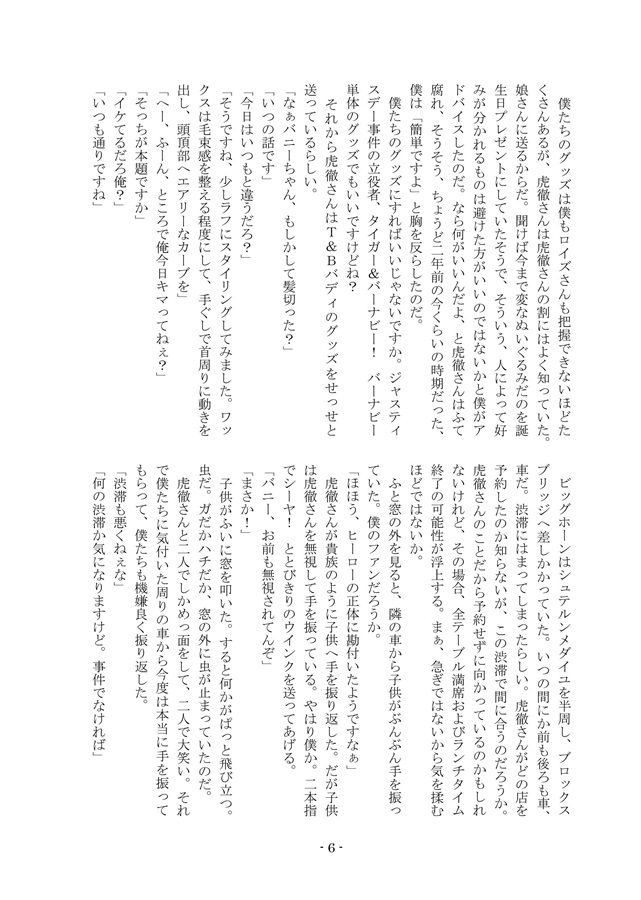 僕たちのグッズは僕もロイズさんも把握できないほどた
くさんあるが、虎徹さんは虎徹さんの割にはよく知っていた。
娘さんに送るからだ。聞けば今まで変なぬいぐるみだのを誕
生日プレゼントにしていたそうで、そういう、人によって好
みが分かれるものは避けた方がいいのではないかと僕がア
ドバイスしたのだ。なら何がいいんだよ、と虎徹さんはふて
腐れ、そうそう、ちょうど二年前の今くらいの時期だった、
僕は「簡単ですよ」と胸を反らしたのだ。
　僕たちのグッズにすればいいじゃないですか。ジャスティ
スデー事件の立役者、タイガー＆バーナビー！　バーナビー
単体のグッズでもいいですけどね？
　それから虎徹さんはＴ＆Ｂバディのグッズをせっせと
送っているらしい。
「なぁバニーちゃん、もしかして髪切った？」
「いつの話です」
「今日はいつもと違うだろ？」
「そうですね、少しラフにスタイリングしてみました。ワッ
クスは毛束感を整える程度にして、手ぐしで首周りに動きを
出し、頭頂部へエアリーなカーブを」
「へー、ふーん、ところで俺今日キマってねぇ？」
「そっちが本題ですか」
「イケてるだろ俺？」
「いつも通りですね」
　ビッグホーンはシュテルンメダイユを半周し、ブロックス
ブリッジへ差しかかっていた。いつの間にか前も後ろも車、
車だ。渋滞にはまってしまったらしい。虎徹さんがどの店を
予約したのか知らないが、この渋滞で間に合うのだろうか。
虎徹さんのことだから予約せずに向かっているのかもしれ
ないけれど、その場合、全テーブル満席およびランチタイム
終了の可能性が浮上する。まぁ、急ぎではないから気を揉む
ほどではないか。
　ふと窓の外を見ると、隣の車から子供がぶんぶん手を振っ
ていた。僕のファンだろうか。
「ほほう、ヒーローの正体に勘付いたようですなぁ」
　虎徹さんが貴族のように子供へ手を振り返した。だが子供
は虎徹さんを無視して手を振っている。やはり僕か。二本指
でシーヤ！　ととびきりのウインクを送ってあげる。
「バニー、お前も無視されてんぞ」
「まさか！」
　子供がふいに窓を叩いた。すると何かがぱっと飛び立つ。
虫だ。ガだかハチだか、窓の外に虫が止まっていたのだ。
　虎徹さんと二人でしかめっ面をして、二人で大笑い。それ
で僕たちに気付いた周りの車から今度は本当に手を振って
もらって、僕たちも機嫌良く振り返した。
「渋滞も悪くねぇな」
「何の渋滞か気になりますけど。事件でなければ」
- 6 -